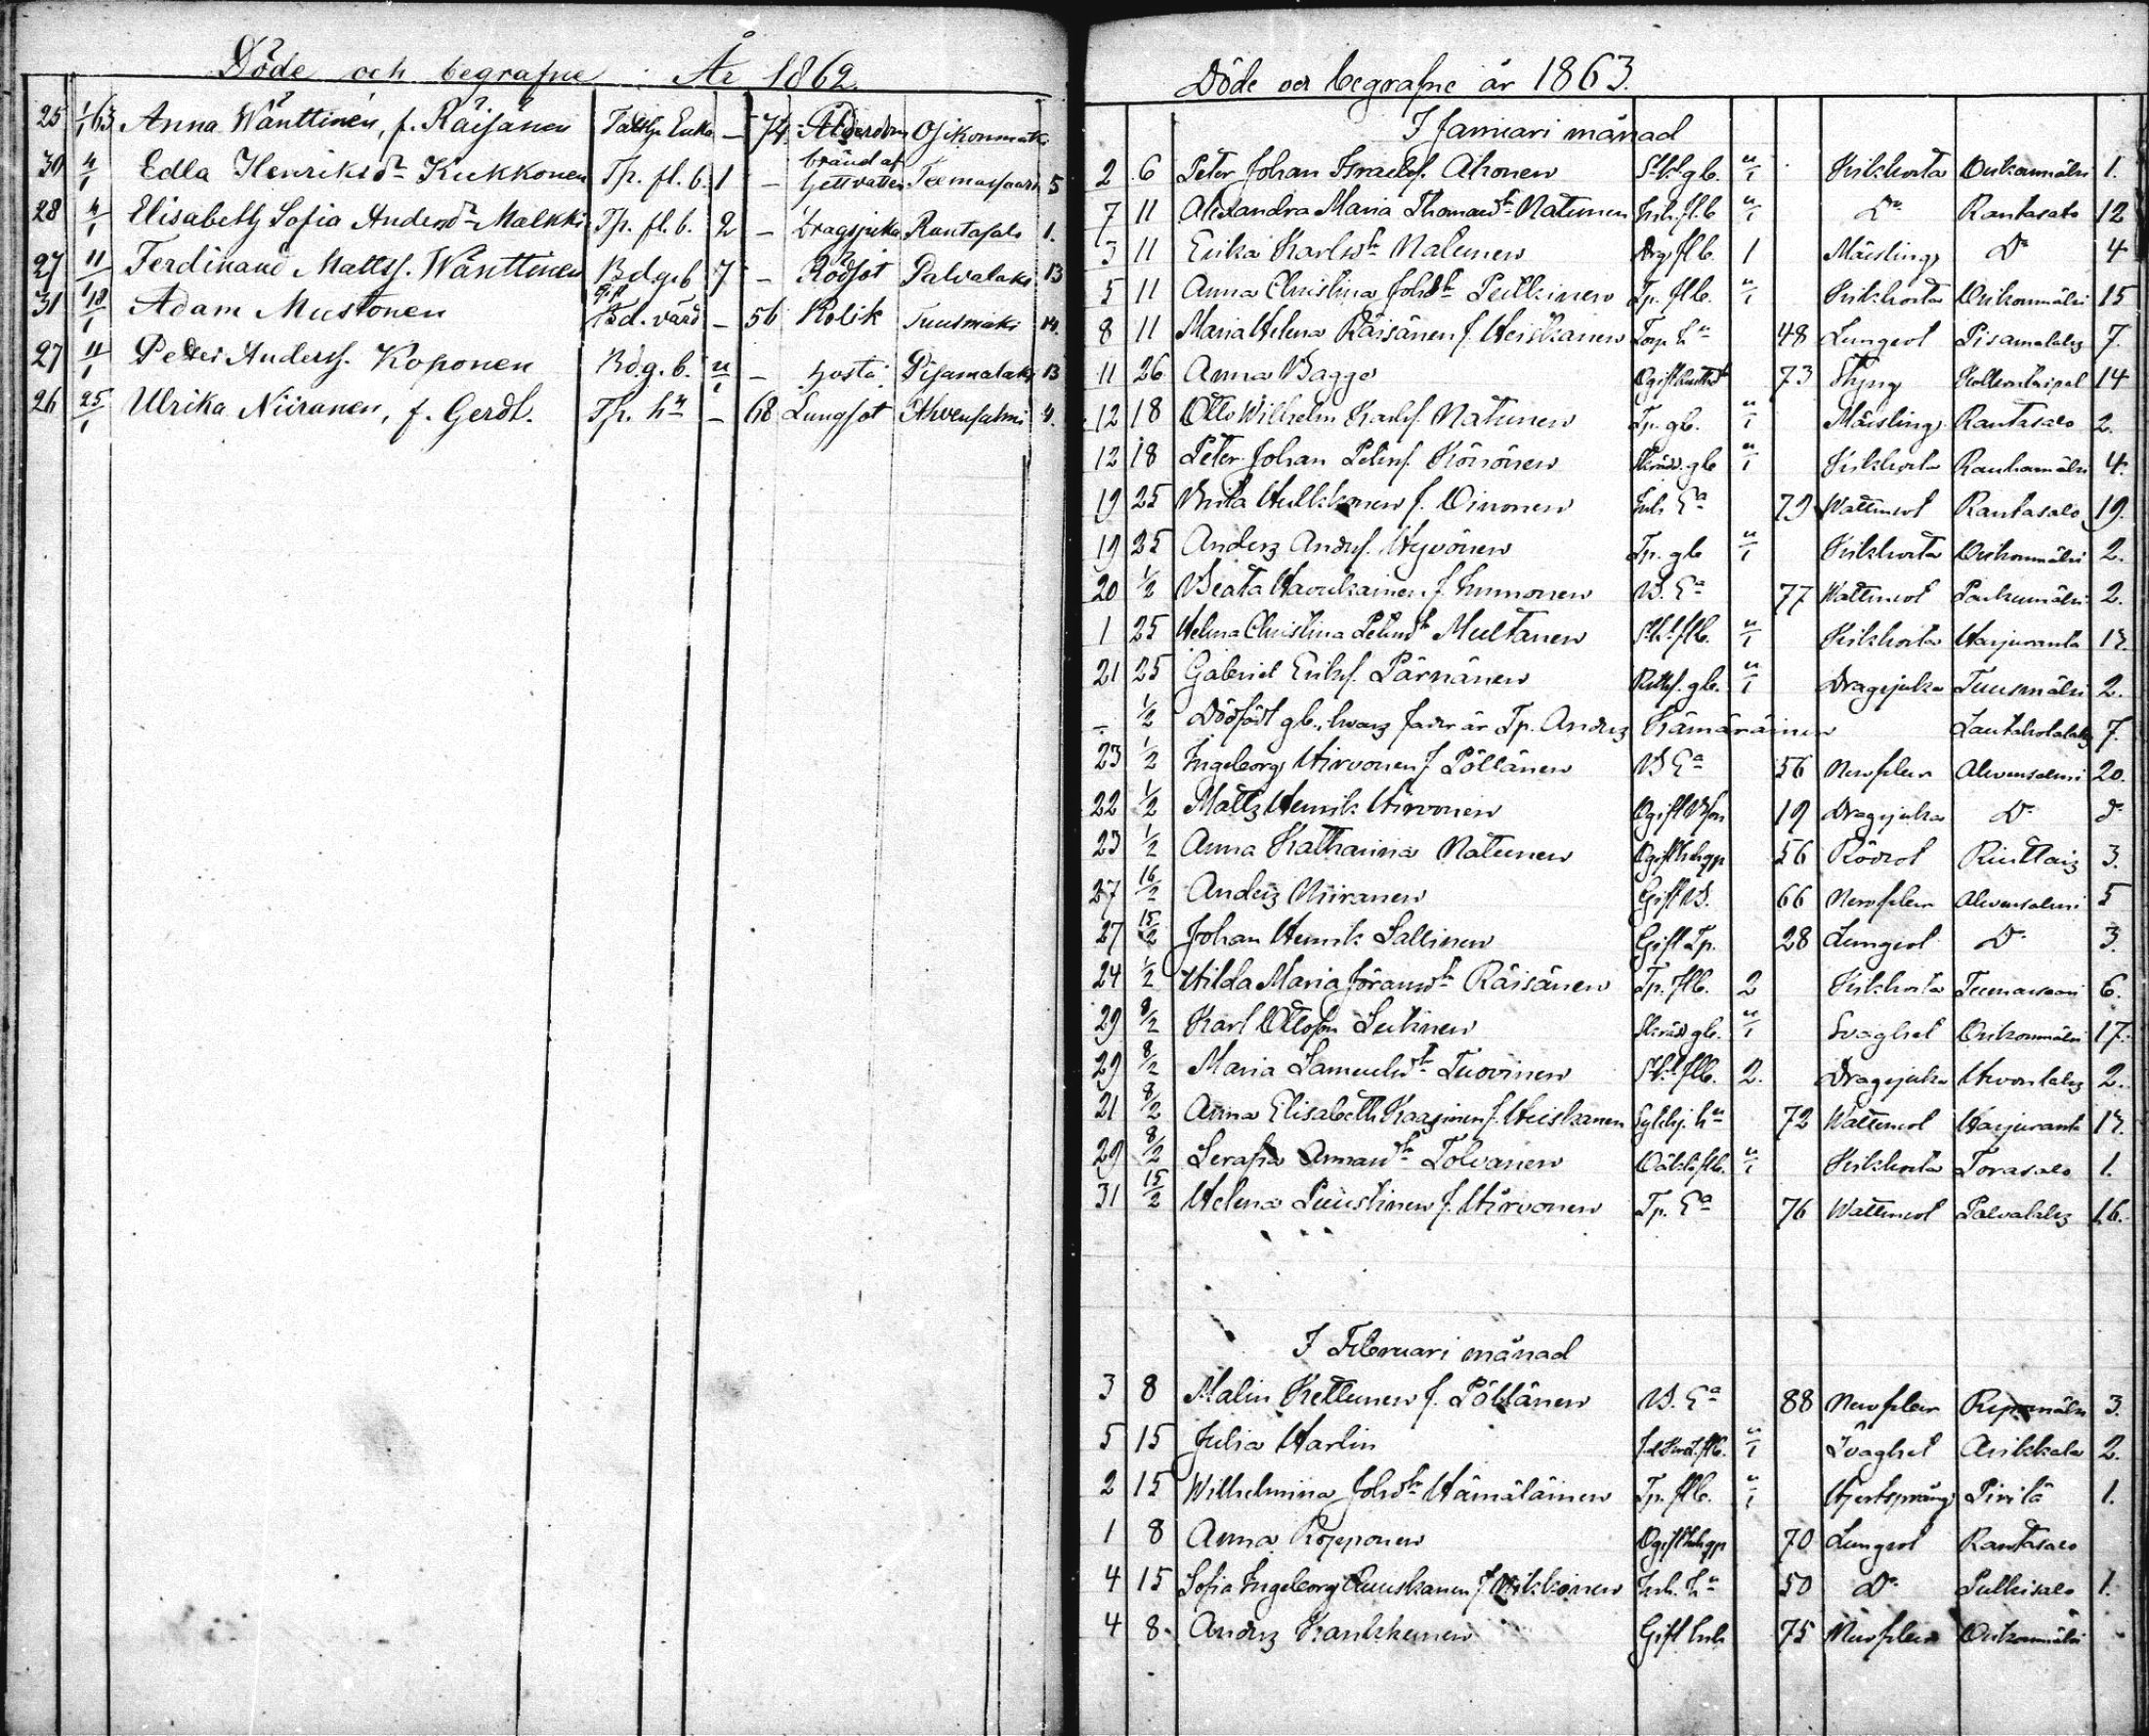 Döde och begrafne År 1862.
25 1/1 63 Anna Wänttinen, f. Räisänen Enka – 74 Ålderdom Osikonmäki
30 4/1 Edla Henriksdr Kukkonen Tp. fl. b. 1 – bränd af hettvatten Teemassaari 5
28 4/1 Elisabeth Sofia Andersdr Malkki Tp. fl. b. 2 – Dragsjuka Rantasalo 1.
27 11/1 Ferdinand Mattss. Wänttinen Bd. g. b 7 – Rödsot Palvalaks 13
31 18/1 Adam Mustonen Gift Bd. värd – 56 Kolik Tuusmäki 14.
27 11/1 Petter Anderss. Koponen Bd. g. b. u/1 – hosta Pisamalaks 13
26 25/1 Ulrika Niiranen, f. Gerdt. Tp. hu – 68 Lungsot Ahvensalmi 4.
Döde och begrafne år 1863.
I Januari månad
2 6 Peter Johan Israelss. Ahonen gb. u/1 Kikhosta Osikonmäki 1.
7 11 Alexandra Maria Thomasdr Natunen Inh. flb u/1 Do Rantasalo 12
3 11 Erika Karlsdr Natunen Drg flb. 1 Mässling Do 4
5 11 Anna Christina Johsdr Pulkinen Tp. flb. u/1 Kikhosta Osikonmäki 15
8 11 Maria Helena Räisänen f. Heiskanen Torp. hu 48 Lungsot Pisamalaks 7.
11 26 Anna Bagge Ogift 73 Styng 14
12 18 Otto Wilhelm Karlss. Natunen Tp. gb. u/1 Mässling Rantasalo 2.
12 18 Peter Johan Peters. Könönen Skrädd. gb u/1 Kikhosta Rauhamäki 4.
19 25 Brita Hulkkonen f. Oinonen Inh. Ea 79 Wattusot Rantasalo 19.
19 25 Anders Anderss. Hyvönen Tp. gb u/1 Kikhosta Osikonmäki 2.
20 1/2 Beata Haverinen f. Immonen B. Ea 77 Wattusot 2.
1 25 Helena Christina Petersdr Multanen flb. u/1 Kikhosta Harjuranta 17.
21 25 Gabriel Erikss. Pärnänen gb. u/1 Dragsjuka Tuusmäki 2.
– 1/2 Dödfödt gb., hvars fader är Tp. Anders Kämäräinen Lautakotalaks 7.
23 1/2 Ingeborg Hirvonen f Pöllänen B Ea 56 Nervfeber Ahvensalmi 20.
22 1/2 Matts Henrik Hirvonen Ogift Bson 19 Dragsjuka Do do
23 1/2 Anna Katharina Natunen Ogift Inhpp 56 Rödsot 3.
27 16/2 Anders Niiranen Gift B. 66 Nervfeber Ahvensalmi 5
27 15/2 Johan Henrik Sallinen Gift Tp. 28 Lungsot Do 3.
24 1/2 Hilda Maria Göransdr Räisänen Tp. flb. 2 Kikhosta Teemassaari 6.
29 8/2 Karl Ottoson Lukinen Skrädd gb. u/1 Svaghet Osikonmäki 17.
29 8/2 Maria Samuelsdr Tuovinen flb. 2. Dragsjuka 2.
21 8/2 Anna Elisabeth Kaasinen f. Heiskanen hu 72 Wattusot Harjuranta 17.
29 8/2 Serafia Annasdr Tolvanen Oäkta flb. u/1 Kikhosta Torasalo 1.
31 15/2 Helena Puustinen f. Hirvonen Tp. Ea 76 Wattusot Palvalaks 16.
I Februari månad
3 8 Malin Kettunen f. Pöllänen B. Ea 88 Nervfeber 3.
5 15 Julia Harlin flb. u/1 Svaghet Asikkala 2.
2 15 Wilhelmina Johsdr Hämäläinen Tp. flb. u/1 Hjertsprång Pirilä 1.
1 8 Anna Ropponen Ogift Inhpp 70 Lungsot Rantasalo
4 15 Sofia Ingeborg Ruuskanen f Mikkonen Inh. hu 50 Do Pulkisalo 1.
4 8. Anders Kankkunen Gift Inh 75 Nervfeber Osikonmäki